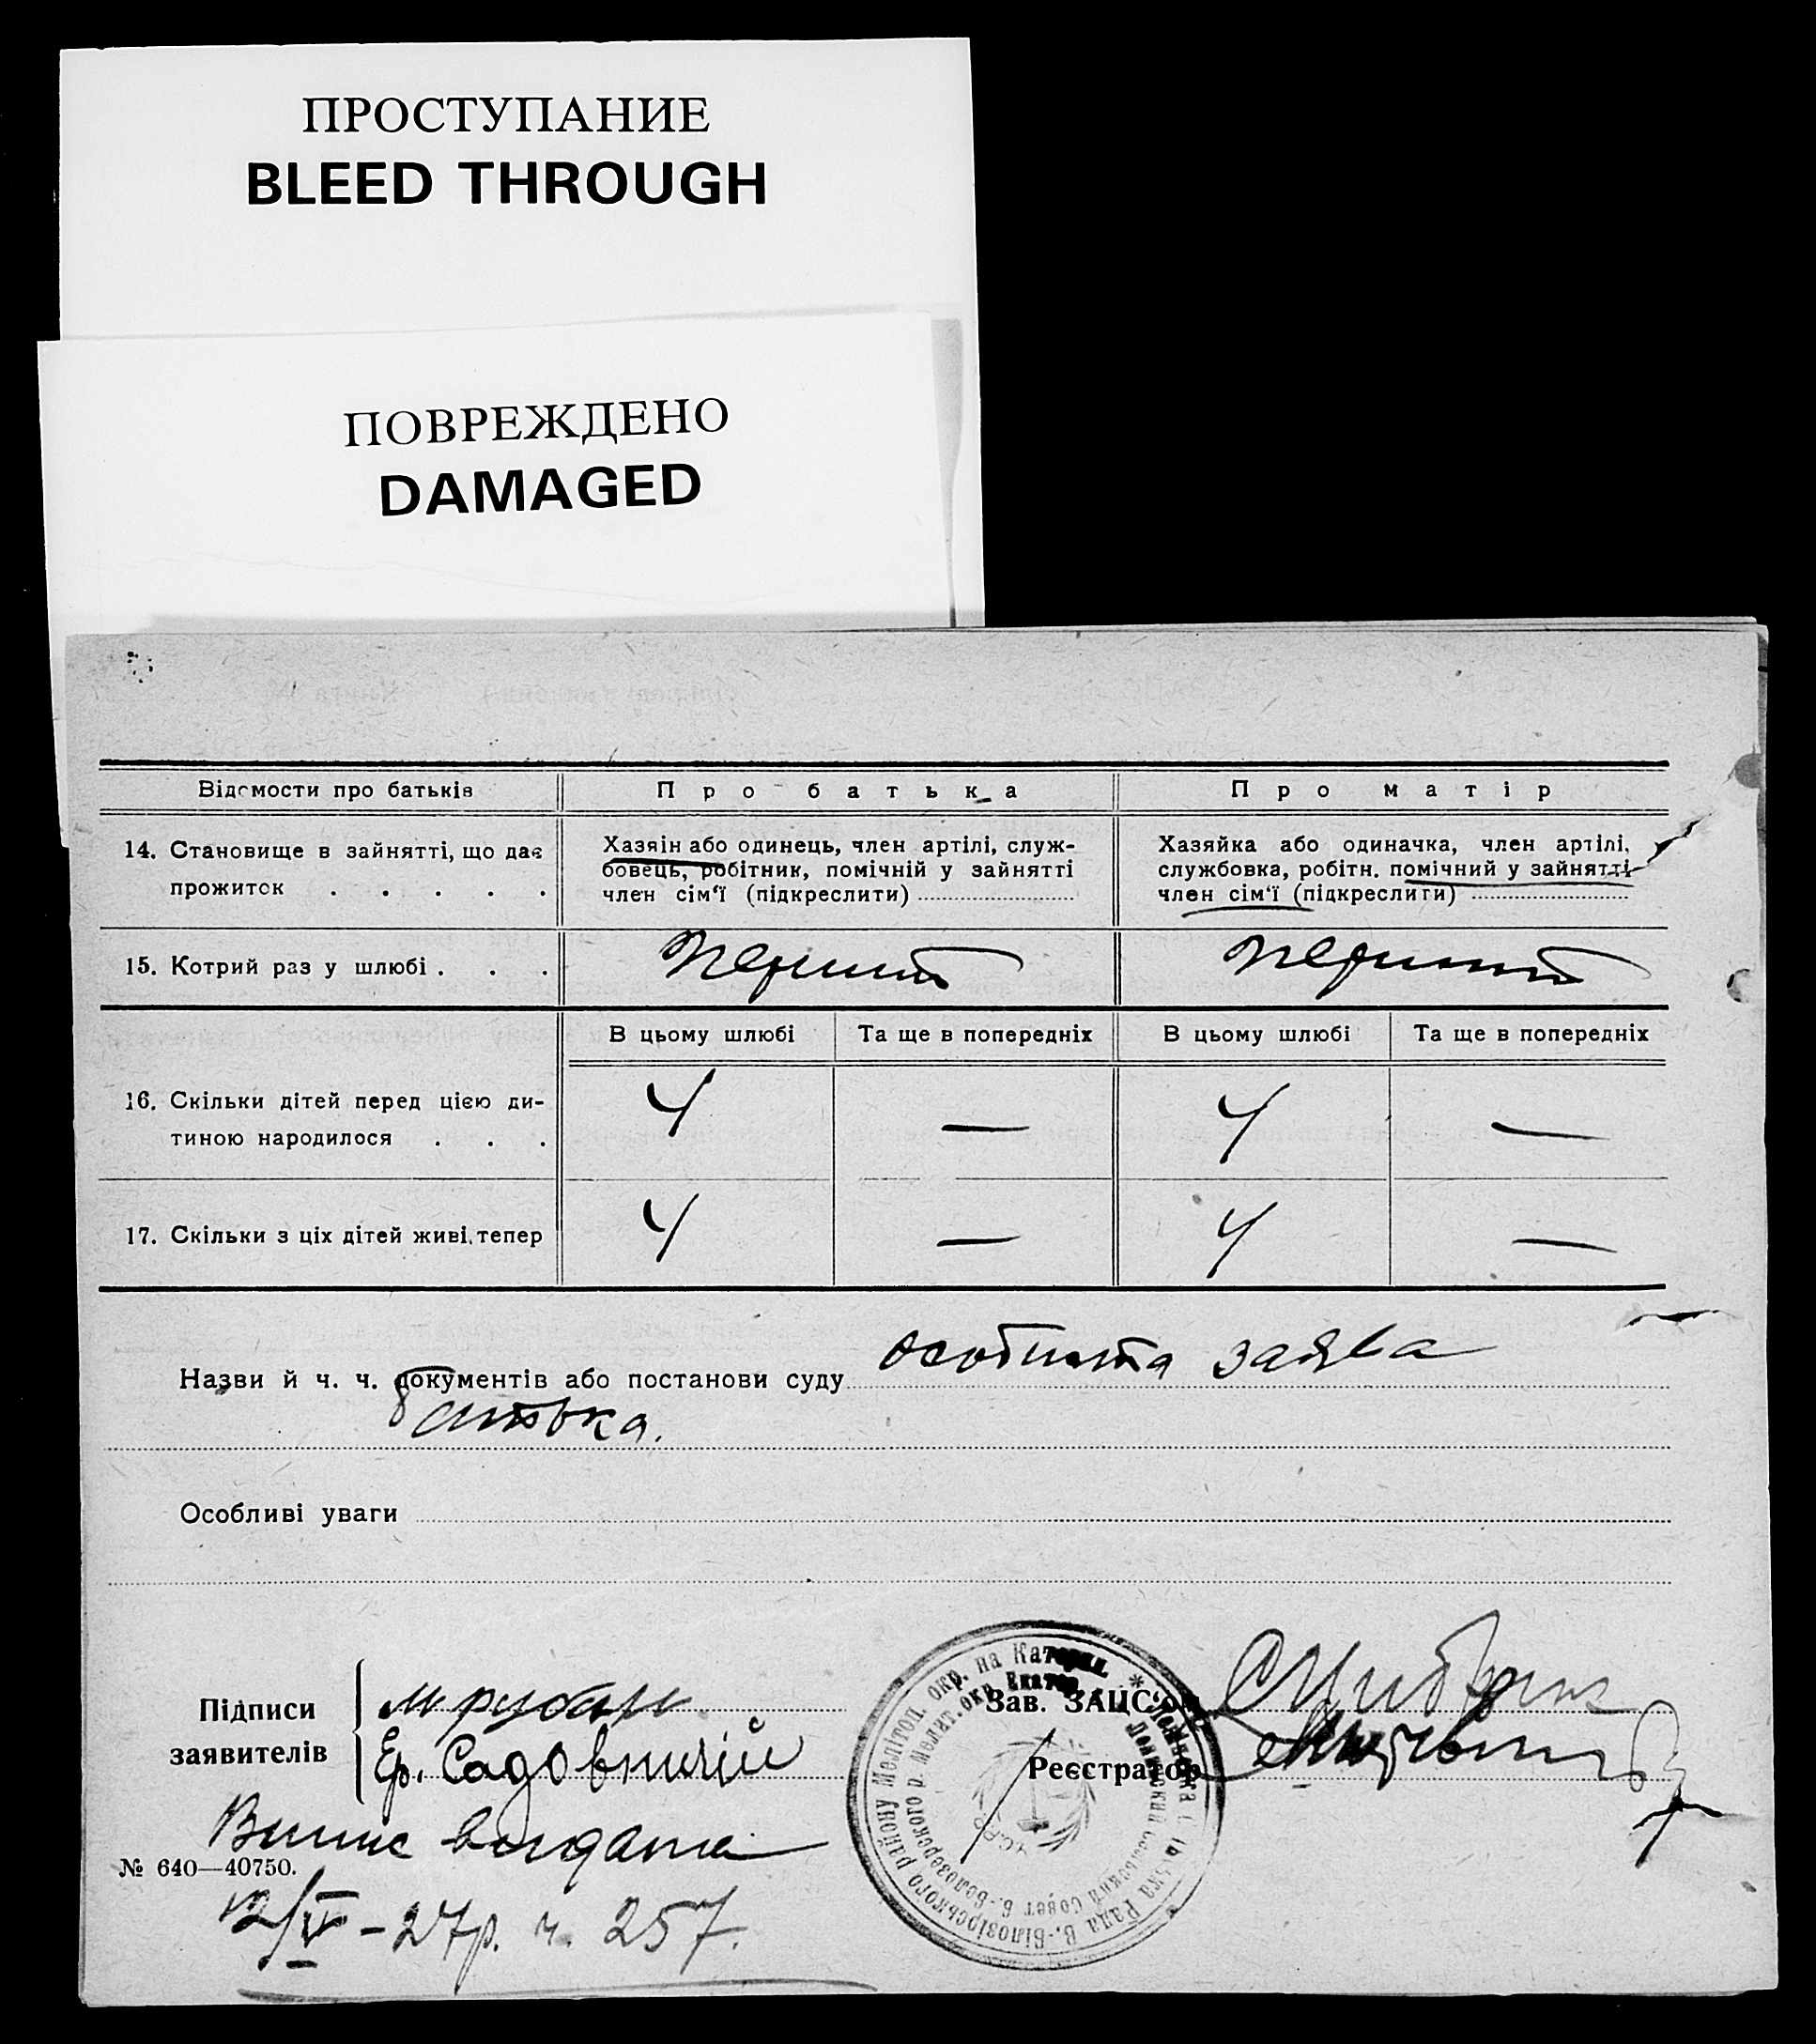 ПРОСТУПАНИЕ
BLEED THROUGH
ПОВРЕЖДЕНО
DAMAGED
Відомости про батьків
Про батька
Про матір
14. Становище в зайнятті, що дає
прожиток . . . . .
Хазяін або одинець, член артілі, служ-
бовець, робітник, помічній у зайнятті
член сім‘ї (підкреслити)
Хазяйка або одиначка, член артілі,
службовка, робітн. помічний у зайнятті
член сім‘ї (підкреслити)
15. Котрий раз у шлюбі . . .
перший
перший
В цьому шлюбі
Та ще в попередніх
В цьому шлюбі
Та ще в попередніх
16. Скільки дітей перед цією ди-
тиною народилося . . .
4 — 4 —
17. Скільки з ціх дітей живі тепер
4 — 4 —
Назви й ч. ч. документів або постанови суду особиста заява
батька.
Особливі уваги
Підписи
заявителів
М Рубан
Ер. Садовничій
Зав. ЗАЦС‘ом
Реєстратор
Випис видана
№ 640—40750.
12/IV – 27р. ч. 257.
Рада В.-Білозірського району Мелітоп. окр. на Катерин.
Совет В.-Белозерского р. Мелит. окр. Екатер.